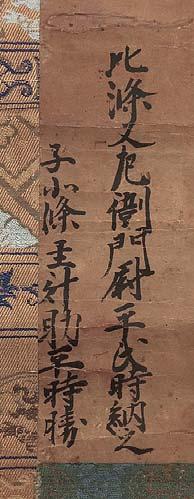 北條又左衛門尉平氏時納之
子小條主計助平時勝